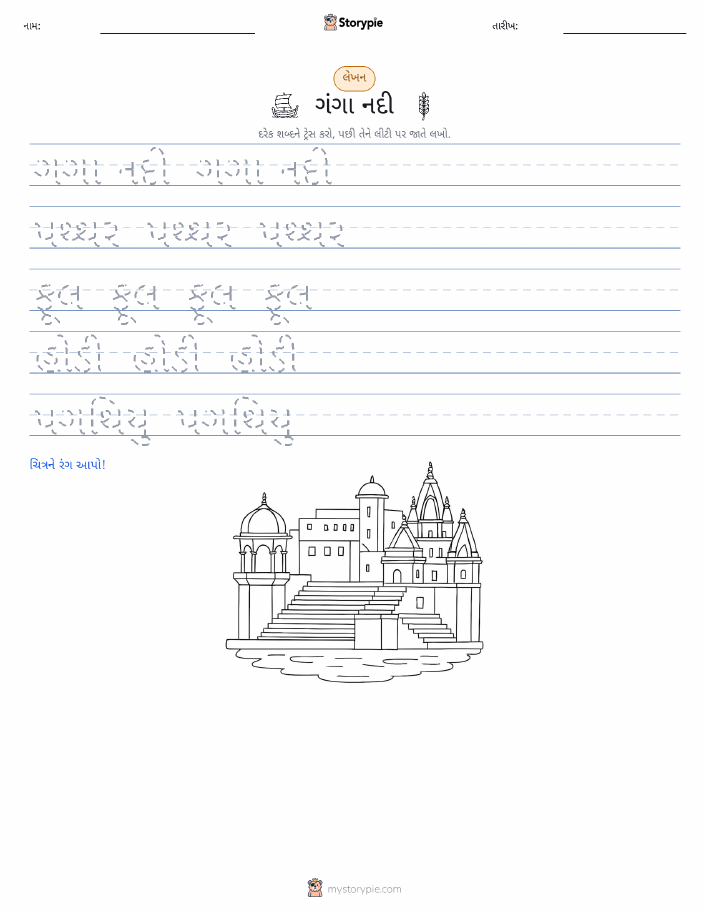 નામ:
Storypie
તારીખ:
લેખન
ગંગા નદી
દરેક શબ્દને ટ્રેસ કરો, પછી તેને લીટી પર જાતે લખો.
ગગા નદી ગગા નદી
પથ્થર પથ્થર પથ્થર
ફૂલ ફૂલ ફૂલ ફૂલ
હોડી હોડી હોડી
પગથિયુ પગથિયુ
ચિત્રને રંગ આપો!
mystorypie.com